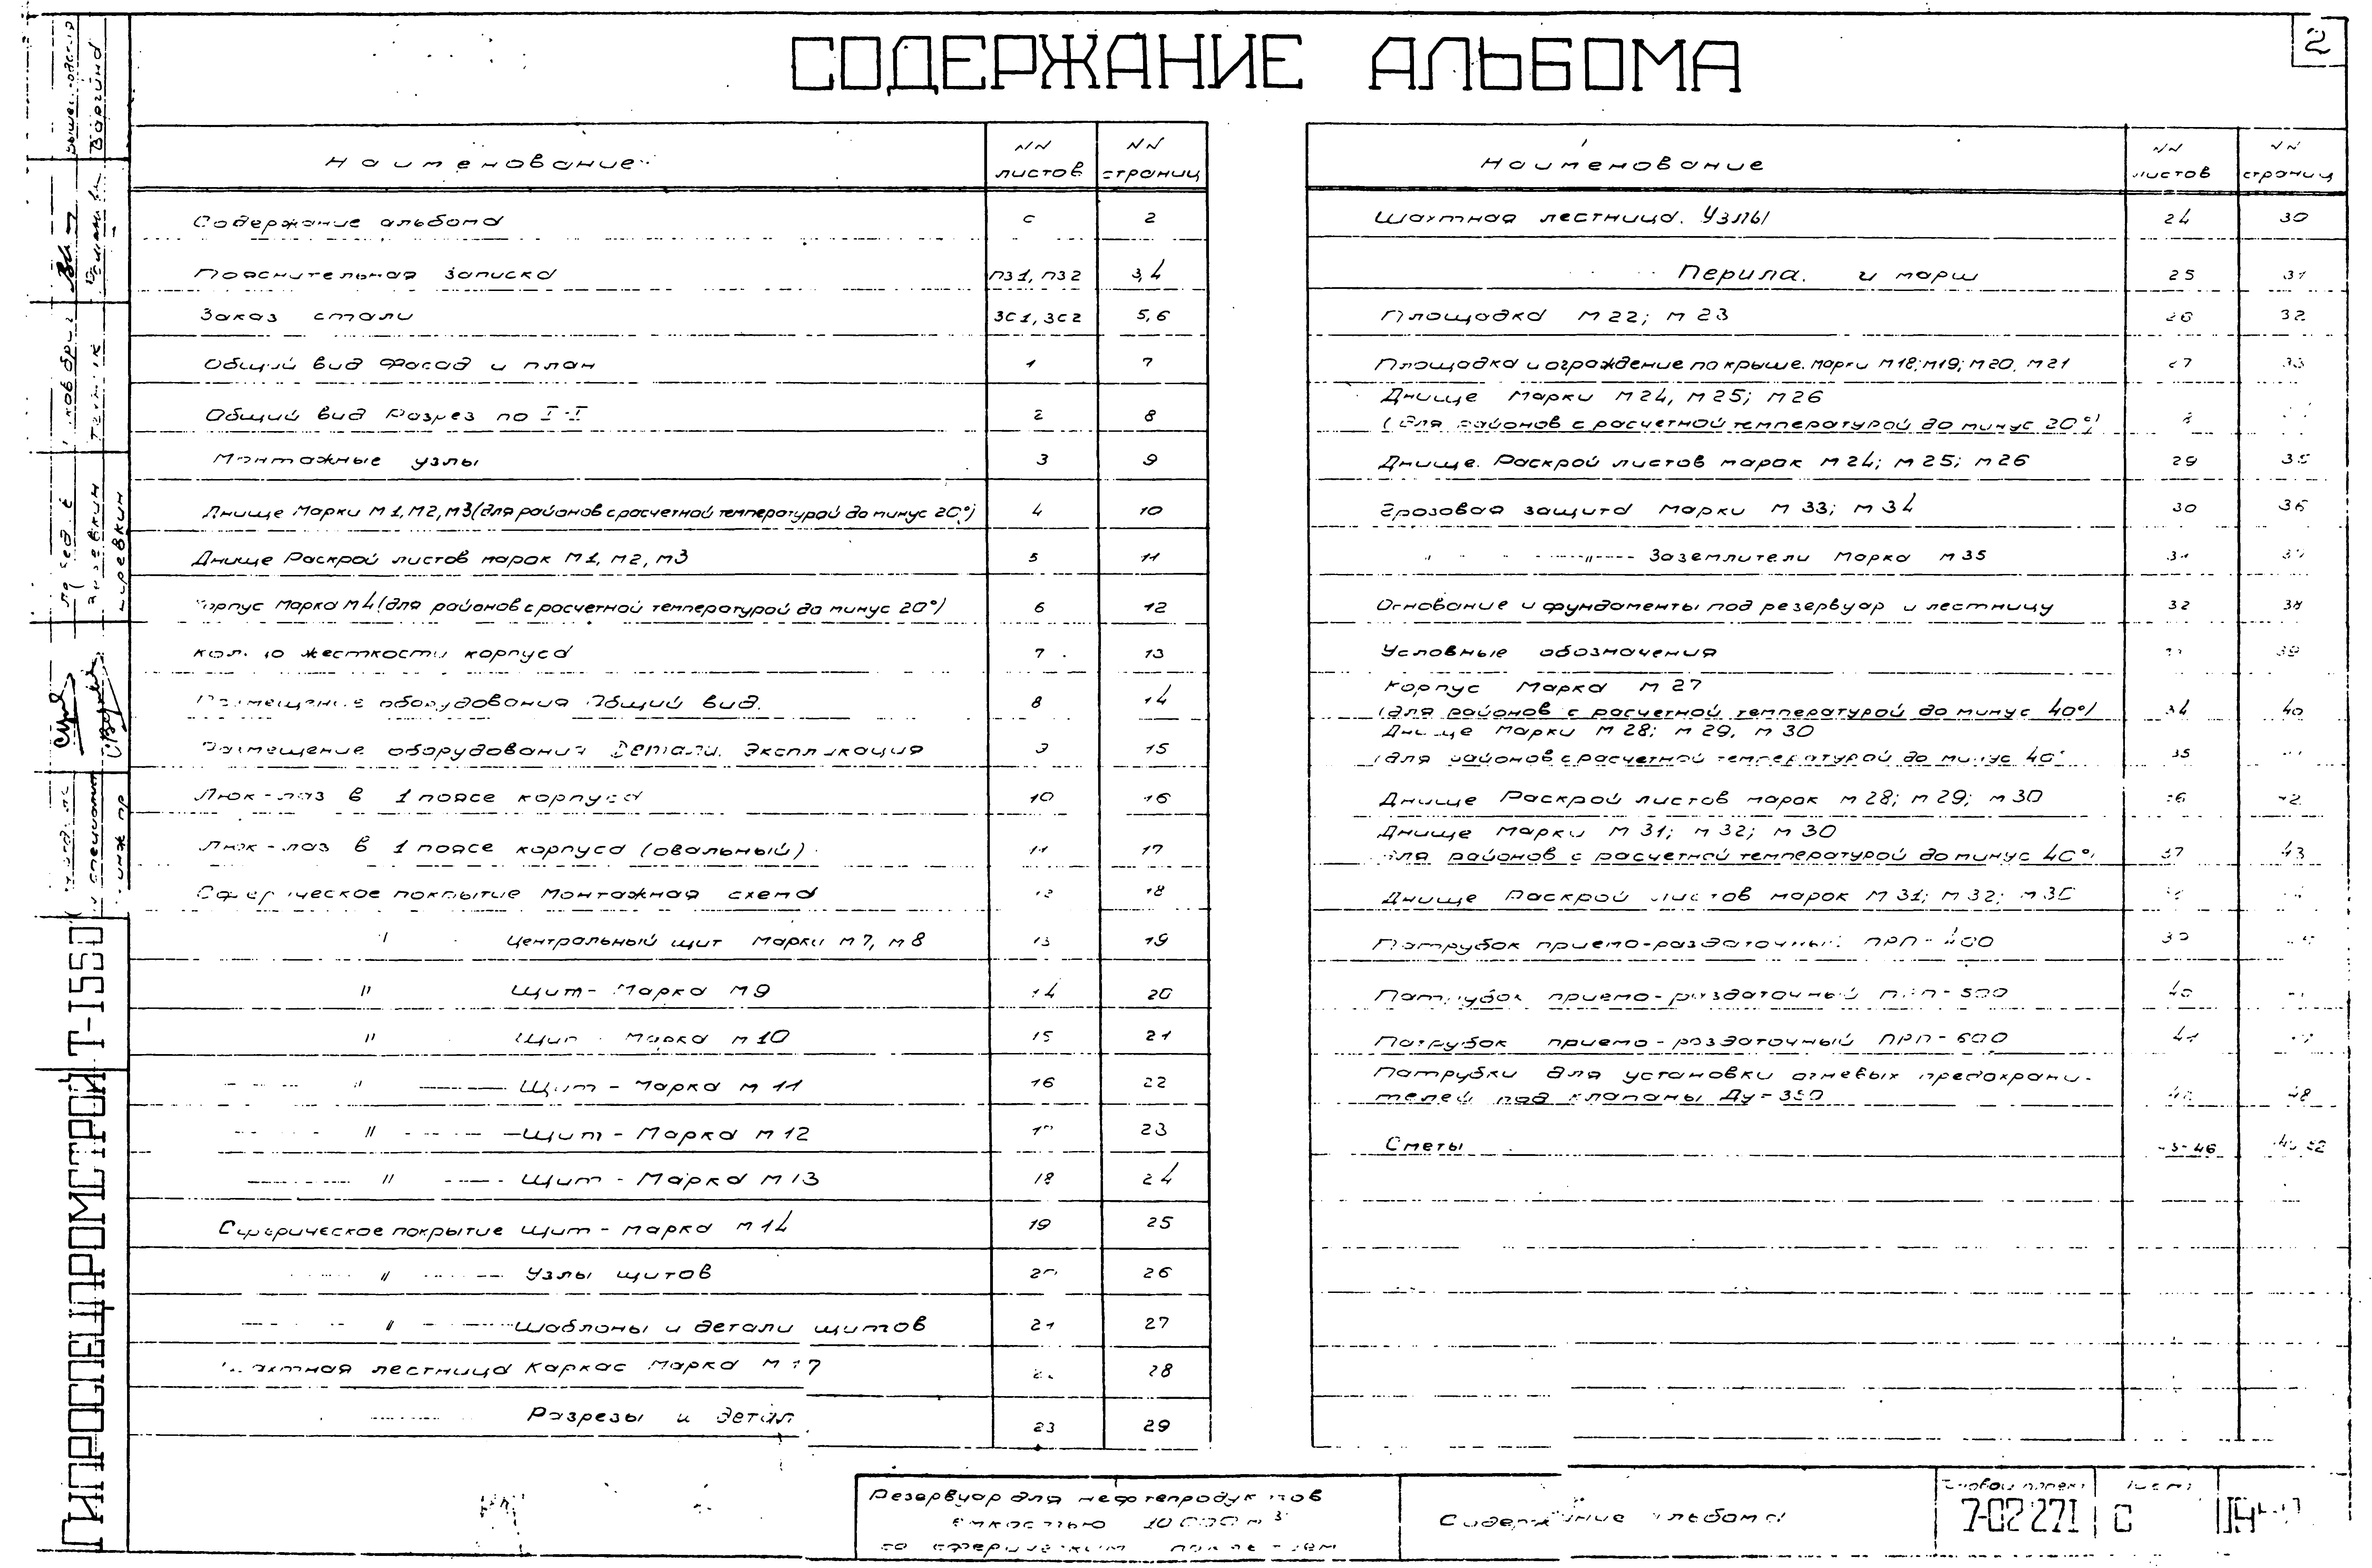 СОДЕРЖАНИЕ АЛЬБОМА
2
Наименование
NN листов
NN страниц
Содержание альбома С 2
Пояснительная записка ПЗ1, ПЗ2 3,4
Заказ стали ЗС1, ЗС2 5,6
Общий вид Фасад и план 1 7
Общий вид Разрез по I-I 2 8
Монтажные узлы 3 9
Днище Марки М1, М2, М3 (для районов с расчетной температурой до минус 20°) 4 10
Днище Раскрой листов марок М1, М2, М3 5 11
Корпус Марка М4 (для районов с расчетной температурой до минус 20°) 6 12
жесткости корпуса 7 13
Размещение оборудования Общий вид. 8 14
Размещение оборудования Детали. Экспликация 9 15
Люк-лаз в 1 поясе корпуса 10 16
Люк-лаз в 1 поясе корпуса (овальный) 11 17
Сферическое покрытие Монтажная схема 18
" Центральный щит Марки М7, М8 13 19
" Щит - Марка М9 14 20
" Щит - Марка М10 15 21
" Щит - Марка М11 16 22
" Щит - Марка М12 23
" Щит - Марка М13 18 24
Сферическое покрытие Щит - марка М14 19 25
" Узлы щитов 26
" Шаблоны и детали щитов 21 27
Шахтная лестница Каркас Марка М17 28
Разрезы и 23 29
Наименование
NN листов
NN страниц
Шахтная лестница. Узлы 24 30
Перила. и марш 25 31
Площадка М22; М23 26 32
Площадка и ограждение по крыше. Марки М18; М19; М20, М21 27 33
Днище Марки М24, М25; М26
(для районов с расчетной температурой до минус 20°)
Днище. Раскрой листов марок М24; М25; М26 29 35
Грозовая защита Марки М33; М34 30 36
" Заземлители Марка М35 31 37
Основание и фундаменты под резервуар и лестницу 32 38
Условные обозначения 39
Корпус Марка М27
(для районов с расчетной температурой до минус 40°) 34 40
Днище Марки М28; М29, М30
(для районов с расчетной температурой до минус 40° 35
Днище Раскрой листов марок М28; М29; М30 36 42
Днище Марки М31; М32; М30
для районов с расчетной температурой до минус 40° 37 43
Днище Раскрой листов марок М31; М32; М30
Патрубок приемо-раздаточный ПРП-400 39
Патрубок приемо-раздаточный ПРП-500 40
Патрубок приемо-раздаточный ПРП-600 41
Патрубки для установки огневых предохрани-
телей под клапаны Ду=350 48
Сметы 46
Резервуар для нефтепродуктов
емкостью 10000 м³
со сферическим
Содержание альбома
Типовой проект
7-02-271
Лист
С
ГИПРОСПЕЦПРОМСТРОЙ Т-1550